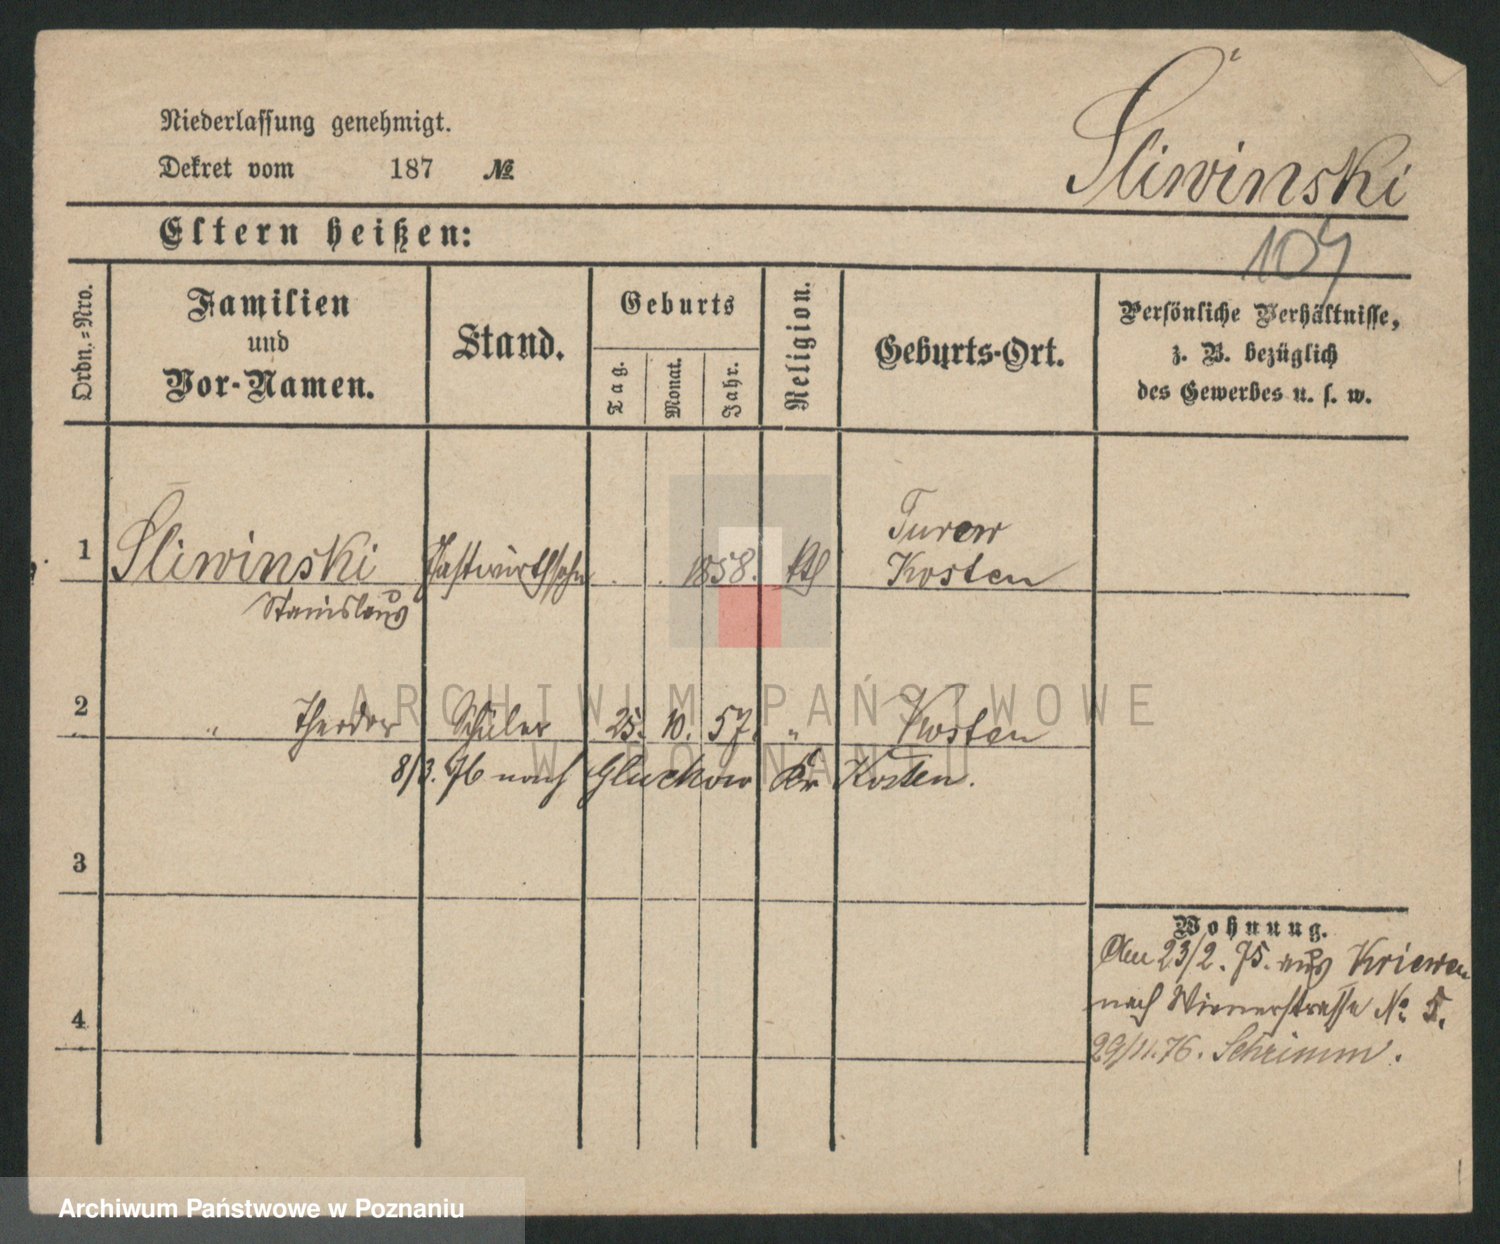 Śliwinski
Niederlassung genehmigt.
Dekret vom 187 №
Eltern heißen:
107
Ordn.=Nro.
Familien
und
Vor-Namen.
Stand.
Geburts
Tag.
Monat.
Jahr.
Religion.
Geburts-Ort.
Persönliche Verhältnisse,
z. B. bezüglich
des Gewerbes u. s. w.
1 Śliwinski Gastwirthssohn . . 1858. Kth Turew
Kosten
Stanislaus
2 " Theodor Schüler 25. 10. 57. " Kosten
8/3. 76 nach Gluchow Kr Kosten.
3
4
Wohnung.
Am 23/2. 75. aus Kriewen
nach Wienerstrasse No 5.
29/11.76. Schrimm.
ARCHIWUM PAŃSTWOWE
W POZNANIU
Archiwum Państwowe w Poznaniu